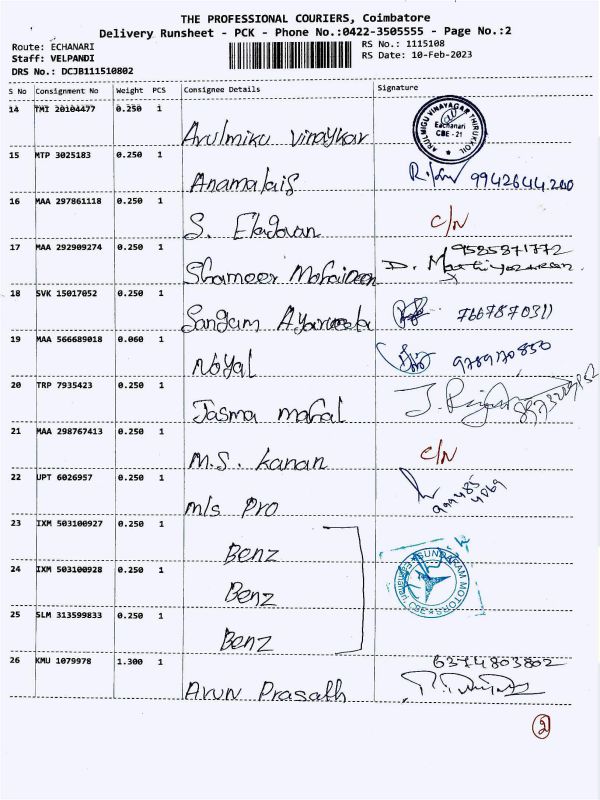 THE PROFESSIONAL COURIERS, Coimbatore
Delivery Runsheet - PCK - Phone No.:0422-3505555 - Page No.:2
Route: ECHANARI
RS No.: 1115108
Staff: VELPANDI
RS Date: 10-Feb-2023
DRS No.: DCJB111510802
S No Consignment No Weight PCS Consignee Details Signature
14 TMI 20104477 0.250 1 Arulmiku Vinaykar
ARUL MIGU VINAYAGAR THIRUKKOIL Eachanari CBE - 21
15 MTP 3025183 0.250 1 Anamalais 9942644200
16 MAA 297861118 0.250 1 S. Elagovan C/N
17 MAA 292909274 0.250 1 Shameer Mohaideen 9585871772
18 SVK 15017052 0.250 1 Sangam 7667870311
19 MAA 566689018 0.060 1 Noyal
20 TRP 7935423 0.250 1 Jasma mahal
21 MAA 298767413 0.250 1 M.S. kanan C/N
22 UPT 6026957 0.250 1 m/s Pro
23 IXM 503100927 0.250 1 Benz
24 IXM 503100928 0.250 1 Benz
SUNDARAM MOTORS CBE
25 SLM 313599833 0.250 1 Benz
26 KMU 1079978 1.300 1 Arun Prasath 6374803802
2